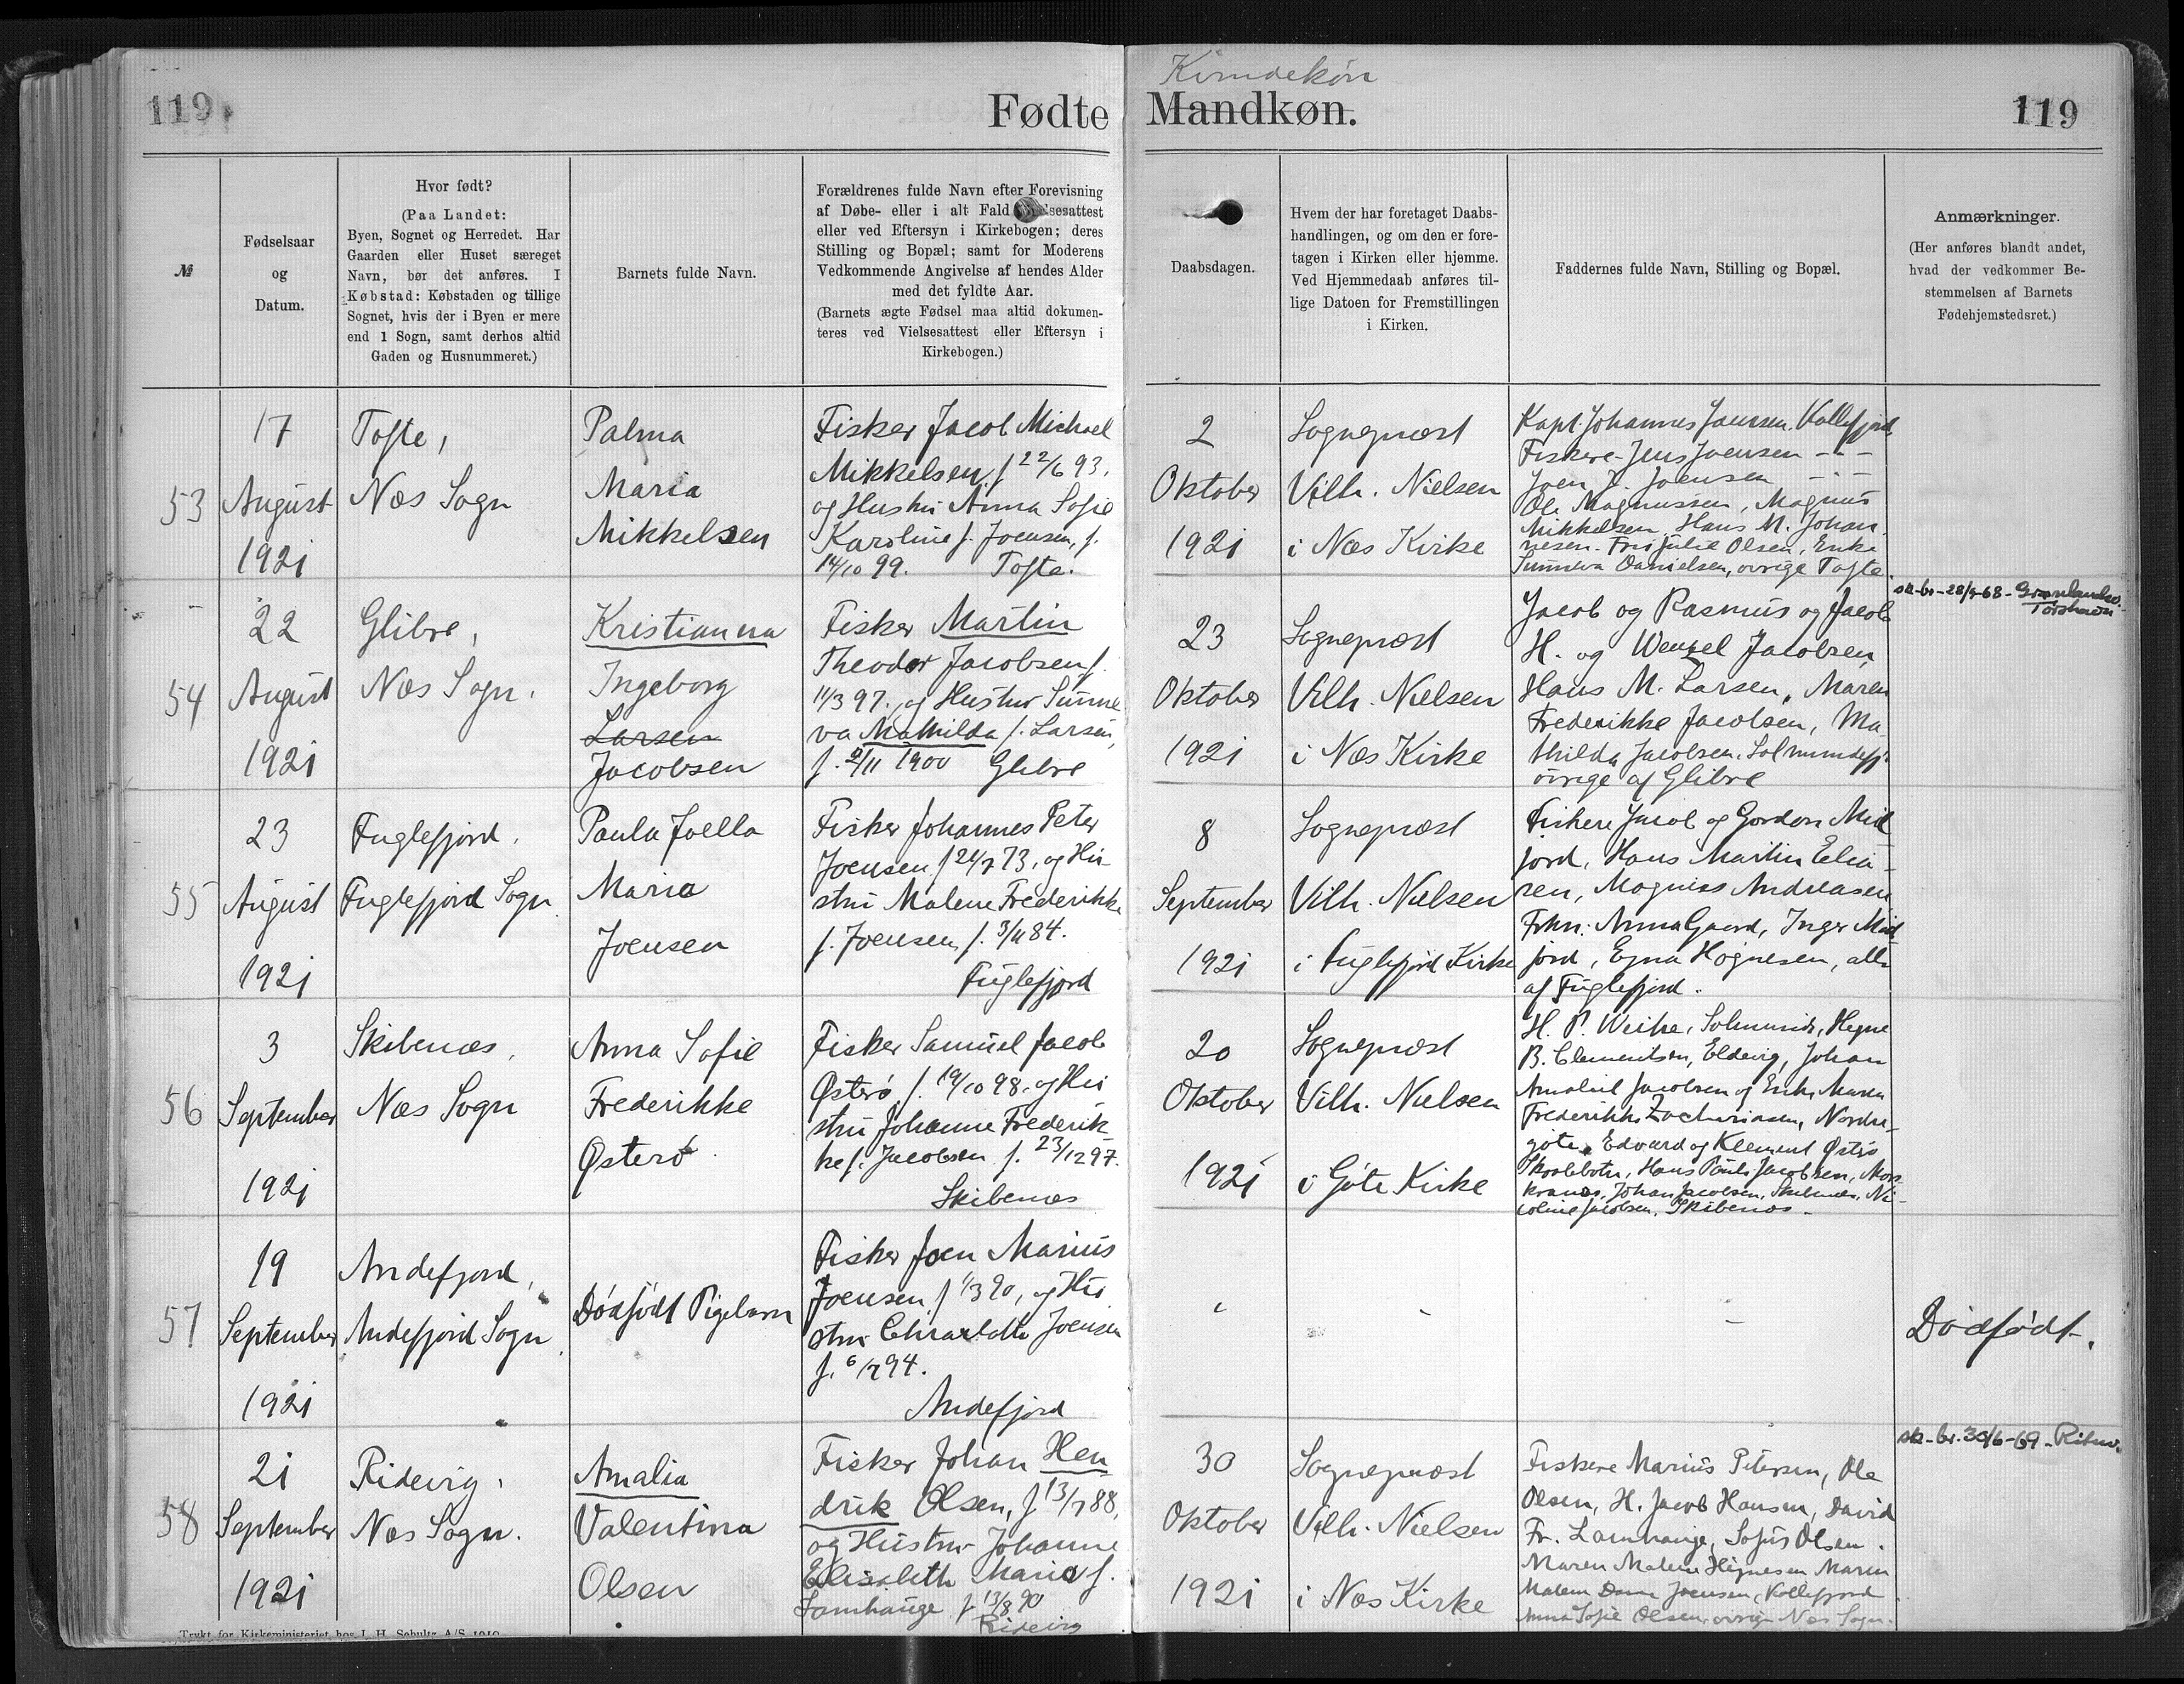 119
Fødte
Kvindekøn
Mandkøn.
119
№
Fødselsaar
og
Datum.
Hvor født?
(Paa Landet:
Byen, Sognet og Herredet. Har
Gaarden eller Huset særeget
Navn, bør det anføres. I
Købstad: Købstaden og tillige
Sognet, hvis der i Byen er mere
end 1 Sogn, samt derhos altid
Gaden og Husnummeret.)
Barnets fulde Navn.
Forældrenes fulde Navn efter Forevisning
af Døbe- eller i alt Fald
eller ved Eftersyn i Kirkebogen; deres
Stilling og Bopæl; samt for Moderens
Vedkommende Angivelse af hendes Alder
med det fyldte Aar.
(Barnets ægte Fødsel maa altid dokumen-
teres ved Vielsesattest eller Eftersyn i
Kirkebogen.)
Daabsdagen.
Hvem der har foretaget Daabs-
handlingen, og om den er fore-
tagen i Kirken eller hjemme.
Ved Hjemmedaab anføres til-
lige Datoen for Fremstillingen
i Kirken.
Faddernes fulde Navn, Stilling og Bopæl.
Anmærkninger.
(Her anføres blandt andet,
hvad der vedkommer Be-
stemmelsen af Barnets
Fødehjemstedsret.)
53
17
August
1921
Tofte,
Næs Sogn
Palma
Maria
Mikkelsen
Fisker Jacob Michael
Mikkelsen, f 22/6 93.
og Hustru Anna Sofie
Karoline f. Joensen, f.
14/10 99. Tofte.
2
Oktober
1921
Sognepræst
Vilh. Nielsen
i Næs Kirke
Kapt. Johannes Joensen, Kollefjord,
Fiskere Jens Joensen - " -
Joen J. Joensen - " -
Ole Magnussen, Magnus
Mikkelsen, Hans M. Johan
nesen. Frk Julie Olsen, Enke
Sunneva Danielsen, øvrige Tofte.
54
22
August
1921
Glibre,
Næs Sogn.
Kristianna
Ingeborg
Larsen
Jacobsen
Fisker Martin
Theodor Jacobsen f.
11/3 97., og Hustru Sunne
va Mathilda f. Larsen,
f. /11 1900 Glibre
23
Oktober
1921
Sognepræst
Vilh. Nielsen
i Næs Kirke
Jacob og Rasmus og Jacob
H. og Wenzel Jacobsen,
Hans M. Larsen, Maren
Frederikke Jacobsen, Ma
thilda Jacobsen, Solmundefj.
øvrige af Glibre
Grønlandsv.
Torshavn
55
23
August
1921
Fuglefjord,
Fuglefjord Sogn
Paula Joella
Maria
Joensen
Fisker Johannes Peter
Joensen f 24/7 73, og Hu
stru Malene Frederikke
f. Joensen f. 3/11 84.
Fuglefjord
8
September
1921
Sognepræst
Vilh. Nielsen
i Fuglefjord Kirke
Fiskere Jacob og Gordon Mid
jord, Hans Martin Elia-
sen, Magnus Andreasen
Frkn. Anna Gaard, Inger Mid-
jord, Egna Høgnesen, alle
af Fuglefjord.
56
3
September
1921
Skibenæs,
Næs Sogn
Anna Sofie
Frederikke
Østerø
Fisker Samuel Jacob
Østerø f. 19/10 98, og Hu
stru Johanne Frederik
ke f. Jacobsen f. 23/12 97.
Skibenæs
20
Oktober
1921
Sognepræst
Vilh. Nielsen
i Gøte Kirke
H. P. Weihe, Solmunde, Hegne
B. Clementsen, Eldevig, Johan
Jacobsen og Enke Maren
Frederikke Zachariasen, Nordre-
gøte, Edvard og Klement Østrø
Skaalebotn, Hans Pauli Jacobsen, Mors
kranæs, Johan Jacobsen, Skibenæs, Ni-
coline Jacobsen, Skibenæs.
57
19
September
1921
Andefjord,
Andefjord Sogn.
Dødfødt Pigebarn
Fisker Joen Marius
Joensen f 1/3 90, og Hu
stru Charlotte Joensen
f. 6/7 94.
Andefjord
Dødfødt.
58
21
September
1921
Ridevig,
Næs Sogn.
Amalia
Valentina
Olsen
Fisker Johan Hen
drik Olsen, f 13/7 88,
og Hustru Johanne
Elisabeth Maria f.
Lamhauge f. 13/8 90
Ridevig
30
Oktober
1921
Sognepræst
Vilh. Nielsen
i Næs Kirke
Fiskere Marius Petersen, Ole
Olsen, H. Jacob Hansen, David
Fr. Lamhauge, Sofus Olsen.
Maren Malene Høgnesen, Maren
Malene Joensen, Kollefjord
Anna Sofie Olsen, øvrige Næs Sogn.
Trykt for Kirkeministeriet hos J. H. Schultz A/S 1919